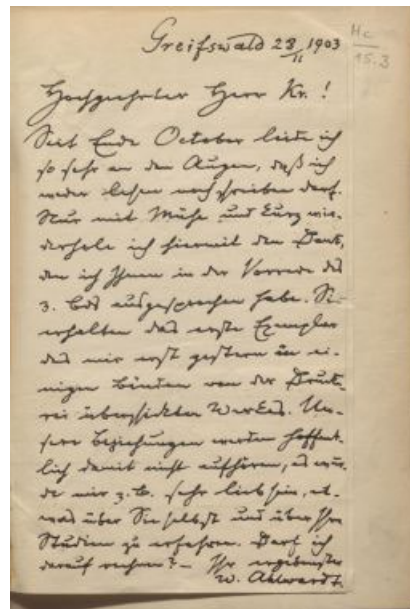 Greifswald 28/11 1903
Hc
15.3
Hochgeehrter Herr Kr.!
Seit Ende October leide ich
so sehr an den Augen, daß ich
weder lesen noch schreiben darf.
Nur mit Mühe und kurz wie-
derhole ich hiermit den Dank,
den ich Ihnen in der Vorrede des
3. Bds ausgesprochen habe. Sie
erhalten das erste Exemplar
des mir erst gestern in ei-
nigen Bänden von der Drucke-
rei übersickten Werkes. Un-
sere Beziehungen werden hoffent-
lich damit nicht aufhören, es wür-
de mir z. B. sehr lieb sein, et-
was über Sie selbst und über Ihre
Studien zu erfahren. Darf ich
darauf rechnen? – Ihr ergebenster
W. Ahlwardt.